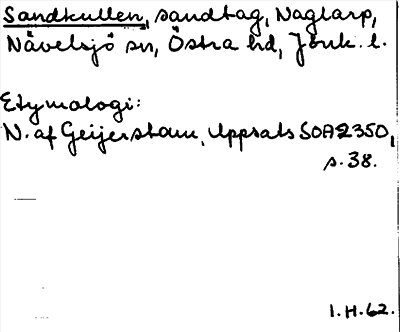 Sandkullen, sandtag, Naglarp,
Nävelsjö sn, Östra hd, Jönk. l.
Etymologi:
N. af Geijerstam, Uppsats SOA 2350,
s. 38.
I.H.62.